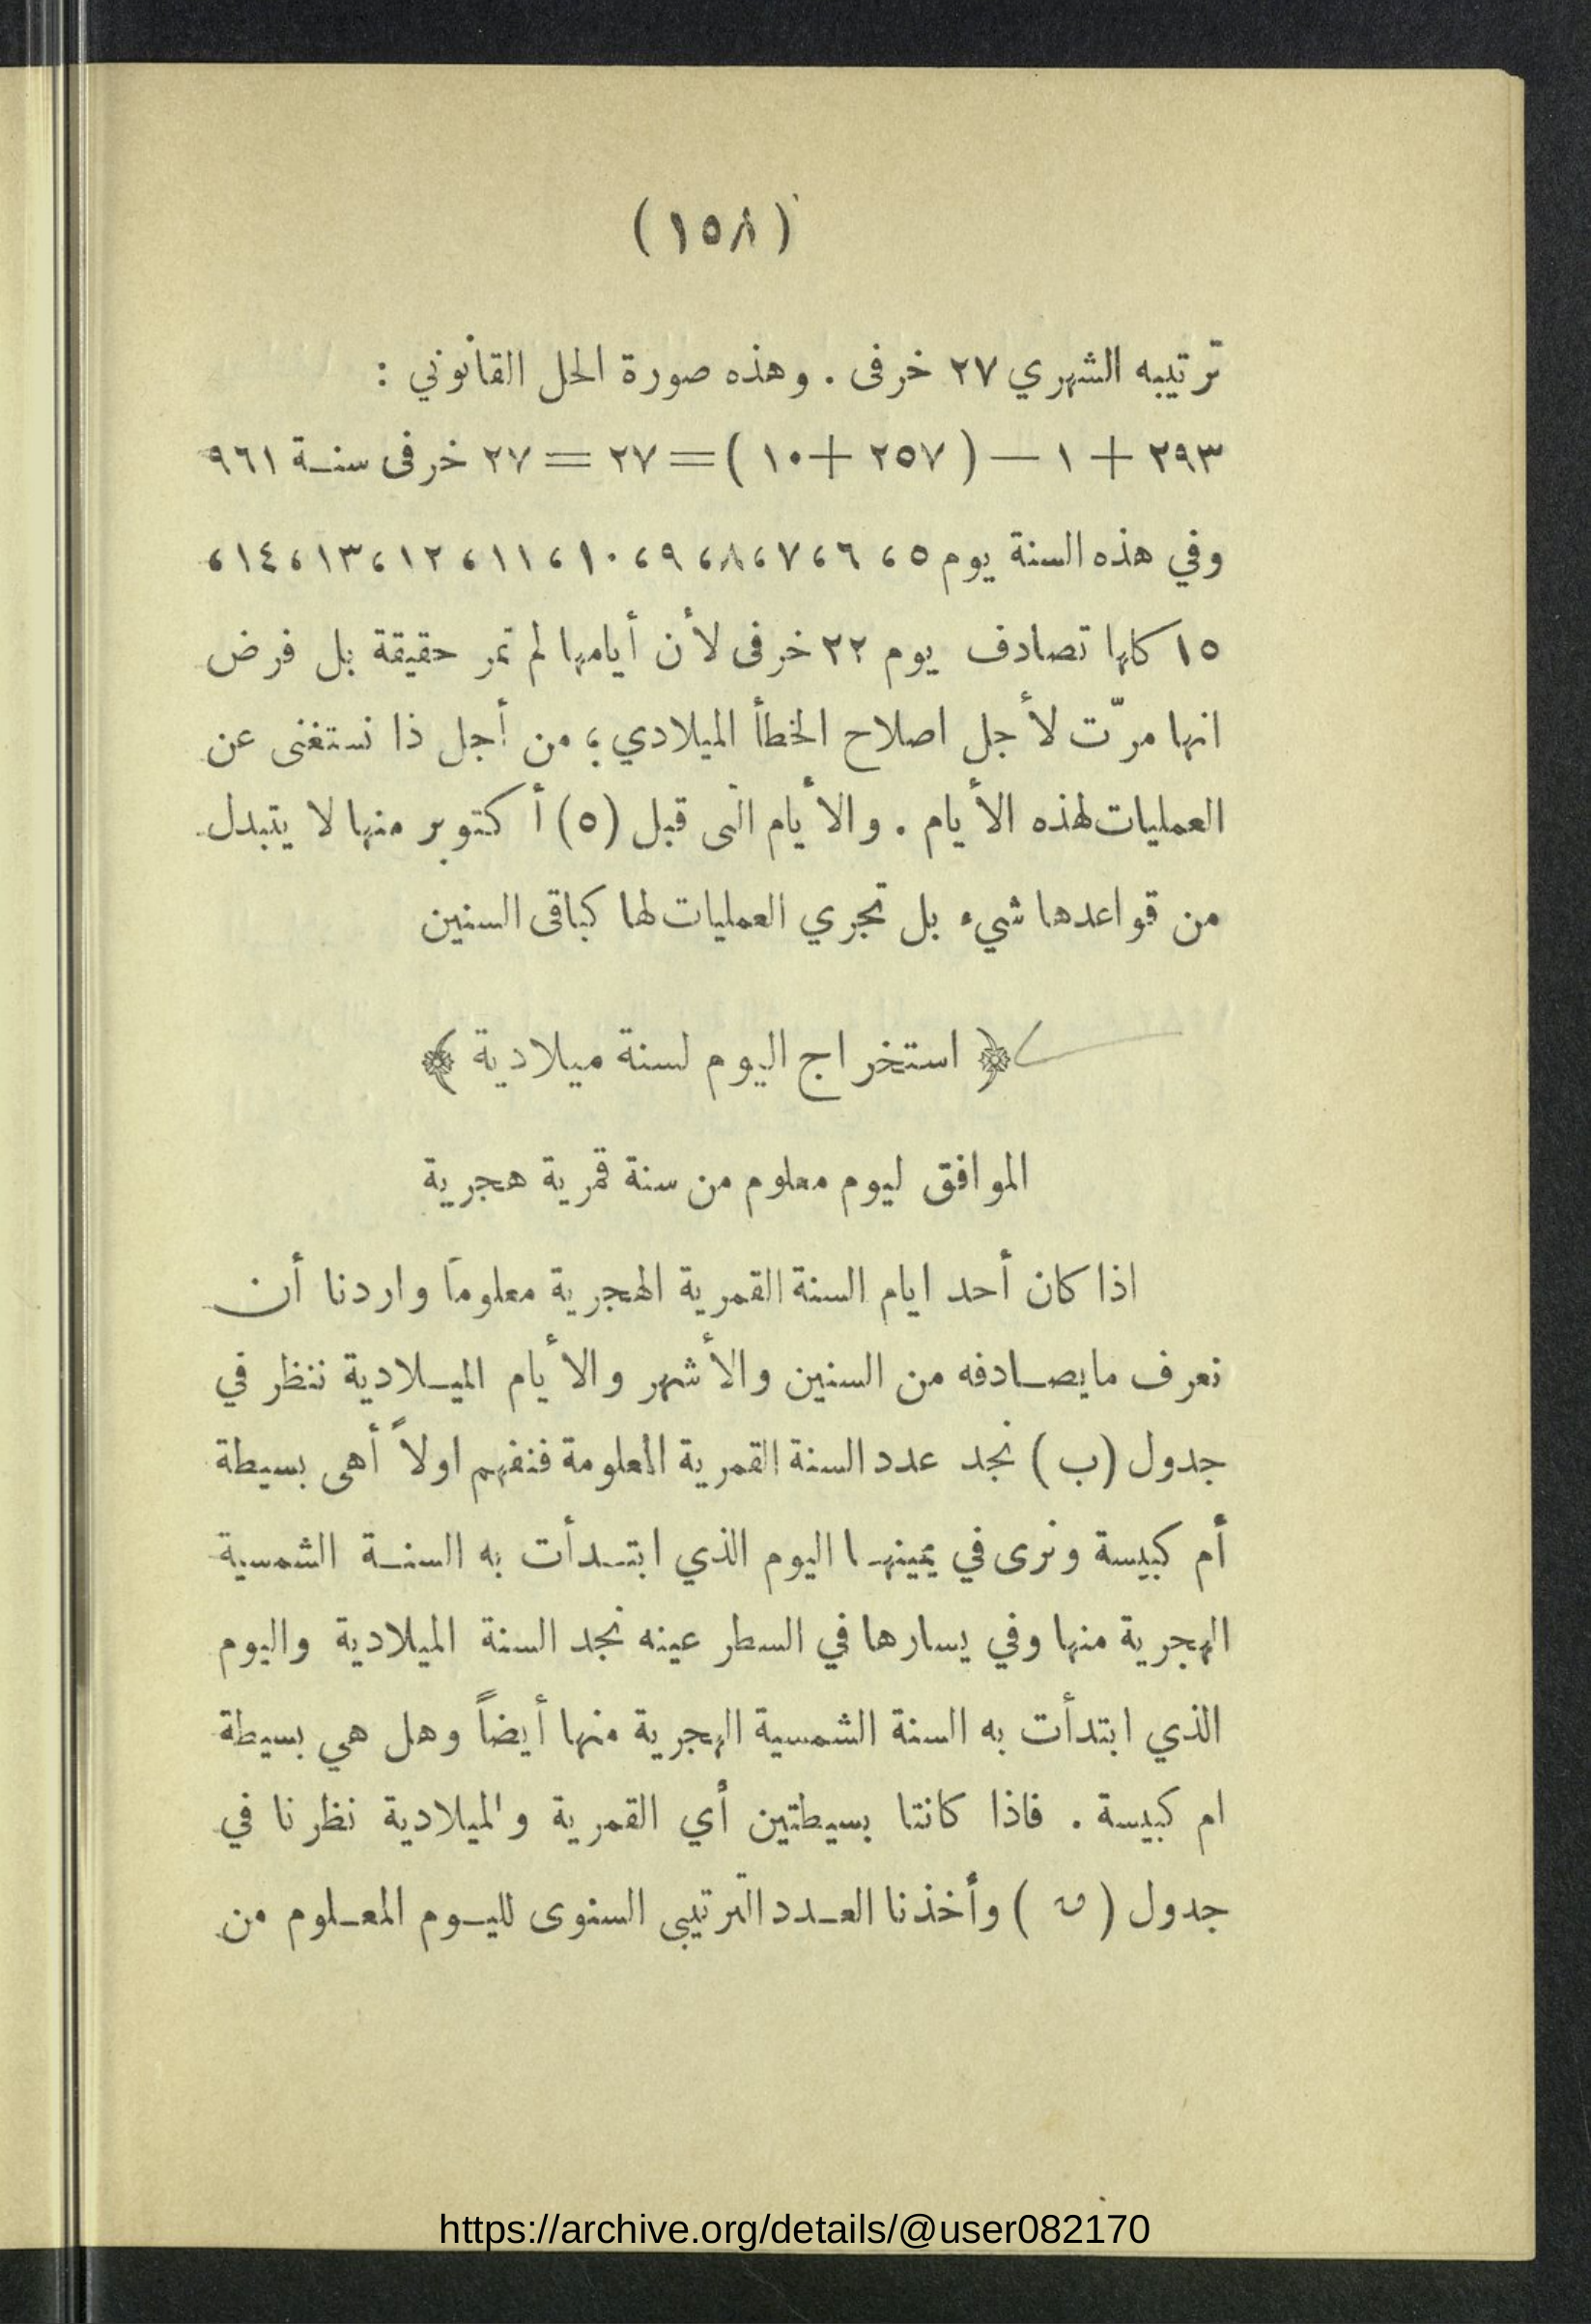 (١٥٨)
ترتيبه الشهري ٢٧ خرفى . وهذه صورة الحل القانوني :
٢٩٣ + ١ — ( ٢٥٧ + ١٠ ) = ٢٧ = ٢٧ خرفى سنة ٩٦١
وفي هذه السنة يوم ٥ ، ٦ ، ٧ ، ٨ ، ٩ ، ١٠ ، ١١ ، ١٢ ، ١٣ ، ١٤ ،
١٥ كلها تصادف يوم ٢٢ خرفى لأن أيامها لم تمر حقيقة بل فرض
انها مرّت لأجل اصلاح الخطأ الميلادي ؛ من أجل ذا نستغنى عن
العمليات لهذه الأيام . والأيام التى قبل (٥) أكتوبر منها لا يتبدل
من قواعدها شيء بل تجري العمليات لها كباقى السنين
﴿ استخراج اليوم لسنة ميلادية ﴾
الموافق ليوم معلوم من سنة قمرية هجرية
اذا كان أحد ايام السنة القمرية الهجرية معلوماً واردنا أن
نعرف مايصادفه من السنين والأشهر والأيام الميلادية ننظر في
جدول (ب) نجد عدد السنة القمرية المعلومة فنفهم اولاً أهى بسيطة
أم كبيسة ونرى في يمينها اليوم الذي ابتدأت به السنة الشمسية
الهجرية منها وفي يسارها في السطر عينه نجد السنة الميلادية واليوم
الذي ابتدأت به السنة الشمسية الهجرية منها أيضاً وهل هي بسيطة
ام كبيسة . فاذا كانتا بسيطتين أي القمرية والميلادية نظرنا في
جدول ( ) وأخذنا العدد الترتيبى السنوى لليوم المعلوم من
https://archive.org/details/@user082170